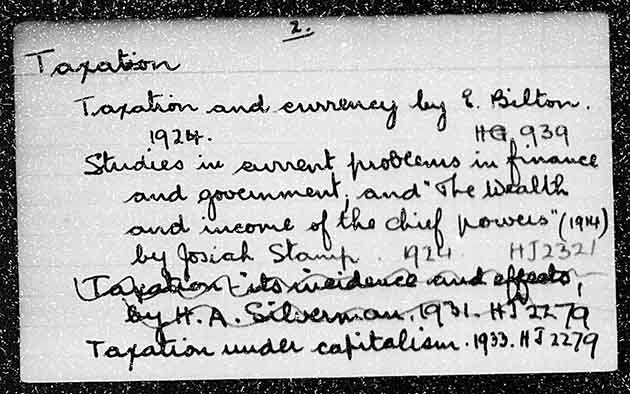 2.
Taxation
Taxation and currency by E. Bilton.
1924. HG 939
Studies in current problems in finance
and government, and "The Wealth
and income of the chief powers" (1914)
by Josiah Stamp. 1924. HJ2321
Taxation - its incidence and effects,
by H. A. Silverman. 1931. HJ 2279
Taxation under capitalism. 1933. HJ 2279